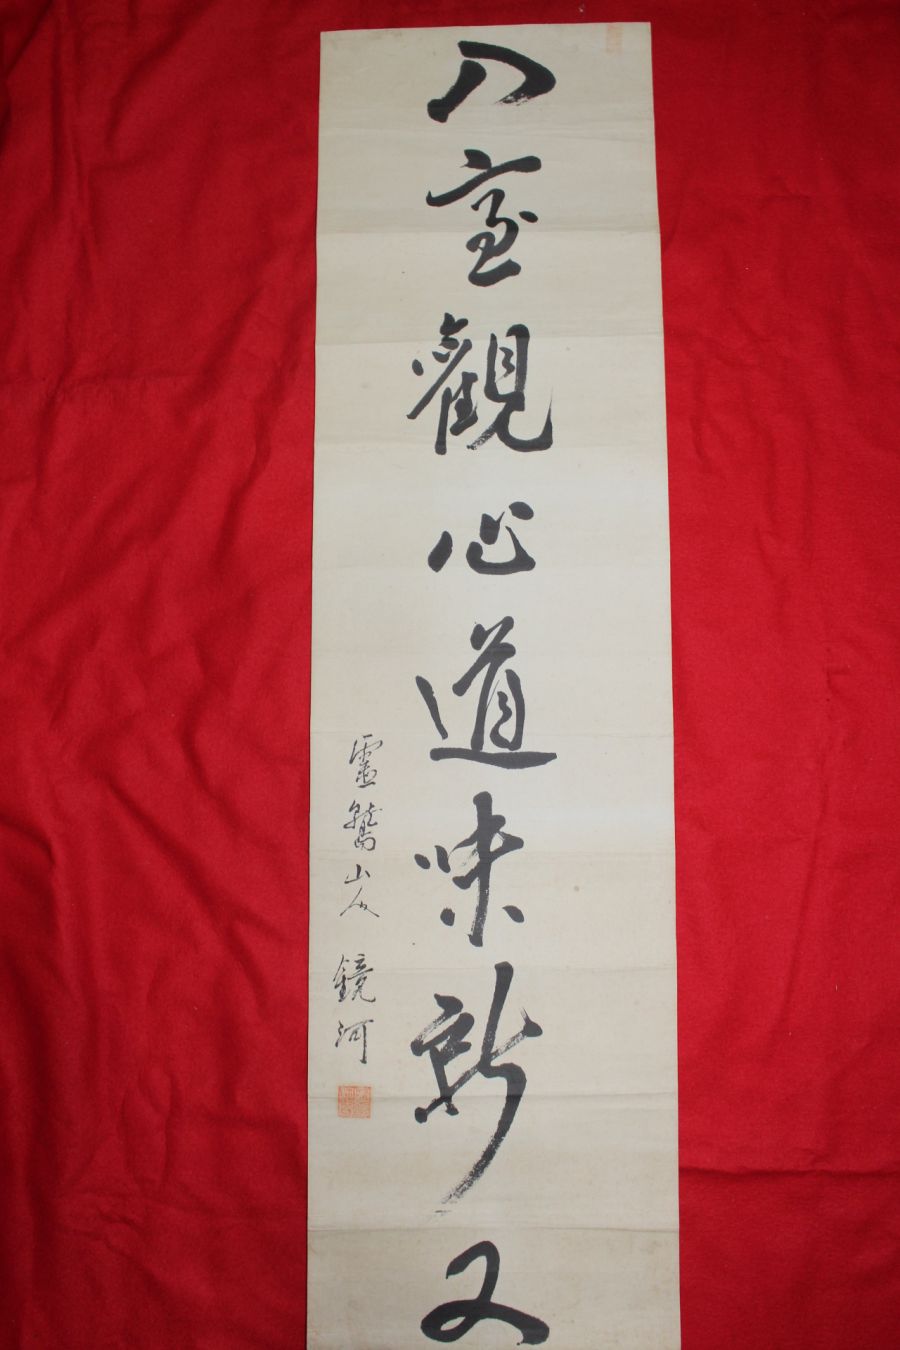 入室觀心道味新又
靈鷲山人 鏡河